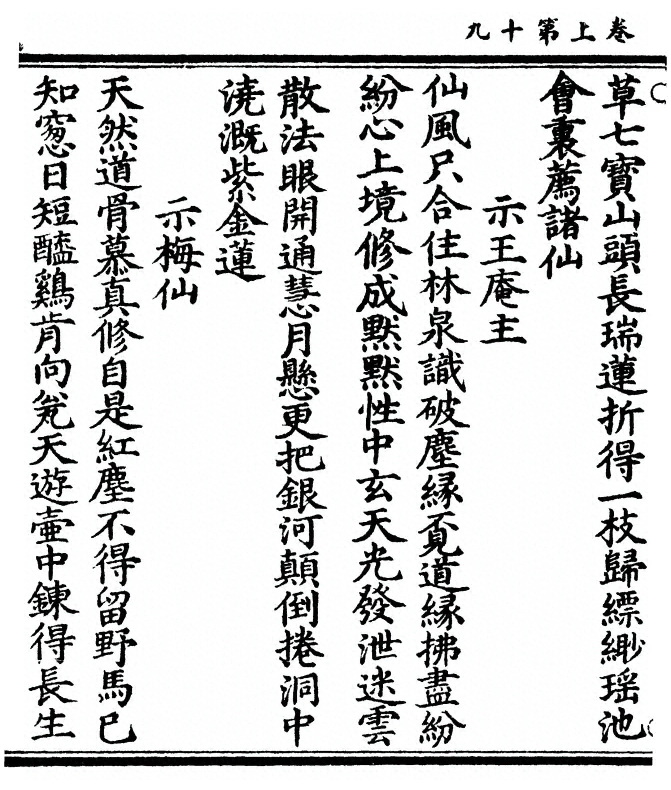 卷上第十九
草七寶山頭長瑞蓮折得一枝歸縹緲瑶池
會裏薦諸仙
示王庵主
仙風只合住林泉識破塵緣覔道緣拂盡紛
紛心上境修成默默性中玄天光發泄迷雲
散法眼開通慧月懸更把銀河顛倒捲洞中
澆溉紫金蓮
示梅仙
天然道骨慕真修自是紅塵不得留野馬已
知窻日短醯鷄肯向瓮天遊壷中鍊得長生